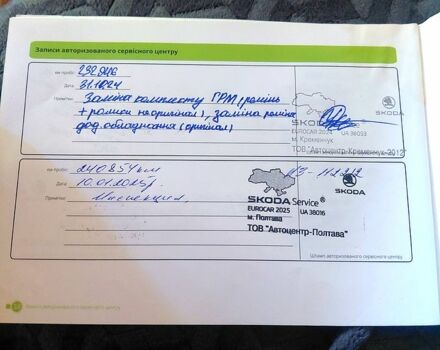 Записи авторизованого сервісного центру
км пробіг 232 946
Дата 31.12.24
Примітки Заміна комплекту ГРМ (ремінь
+ ролики не оригінал), заміна ременя
дод. обладнання (оригінал)
SKODA
EUROCAR 2024 UA 38033
м. Кременчук
ТОВ "Автоцентр-Кременчук-2012"
км пробіг 240854 км
Дата 10.01.2025р
Примітки Инспекция.
SKODA
SKODA Service®
EUROCAR 2025 UA 38016
м. Полтава
ТОВ "Автоцентр-Полтава"
Штамп авторизованого сервісного центру
Записи авторизованого сервісного центру